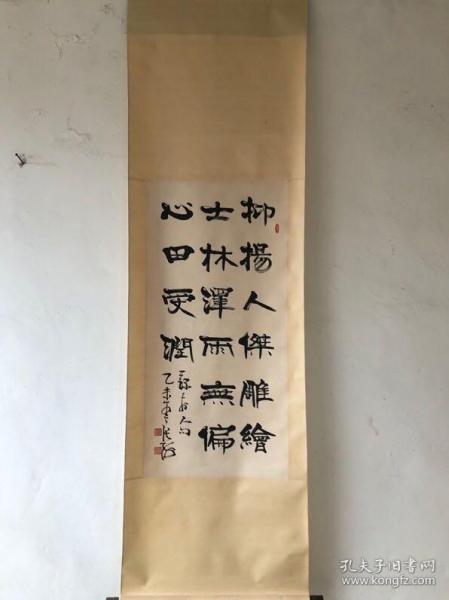 抑揚人傑雕繪
士林澤雨無偏
心田受潤
乙未
孔夫子旧书网
www.kongfz.com